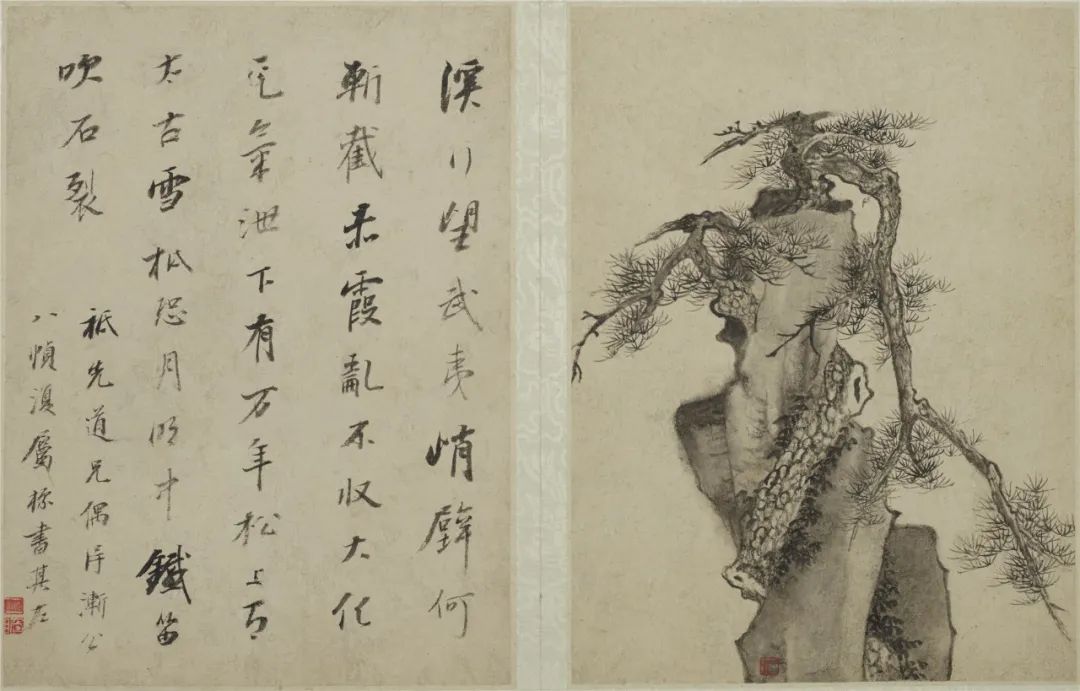 溪行望武夷峭壁何
斬截赤霞亂不收大化
元氣泄下有万年松上有
太古雪秪恐月明中鐵笛
吹石裂
祇先道兄偶得漸公
八幀漫屬書其左